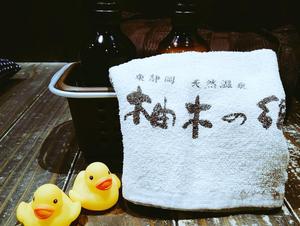 東静岡 天然温泉
柚木の